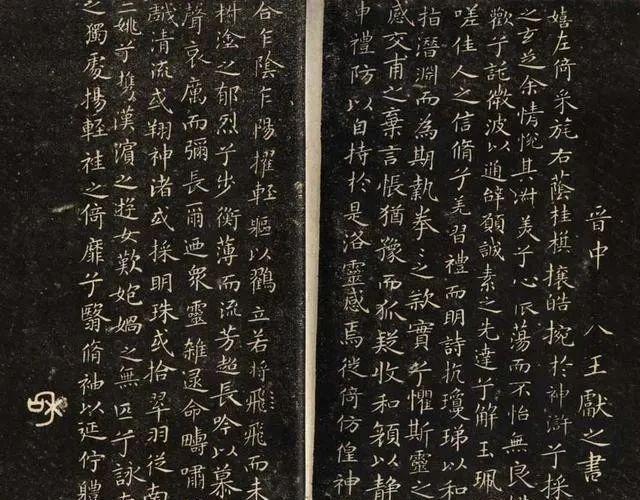 晉中 八王獻之書
嬉左倚采旄右蔭桂棋攘皓捥於神滸兮採
之玄芝余情悅其淑美兮心振蕩而不怡無良
歡兮託微波以通辭願誠素之先達兮解玉珮
嗟佳人之信脩兮羌習禮而明詩抗瓊珶以和
指潛淵而為期執拳々之款實兮懼斯靈之
感交甫之棄言悵猶豫而狐疑收和顏以靜
申禮防以自持於是洛靈感焉徙倚仿偟神
合乍陰乍陽擢輕軀以鶴立若將飛飛而未
椒塗之郁烈兮步衡薄而流芳超長吟以慕
聲哀厲而彌長爾迺眾靈雜遝命疇嘯
戲清流或翔神渚或採明珠或拾翠羽從南
二姚兮攜漢濱之遊女歎匏媧之無匹兮詠
之獨處揚輕袿之倚靡兮翳脩袖以延佇體